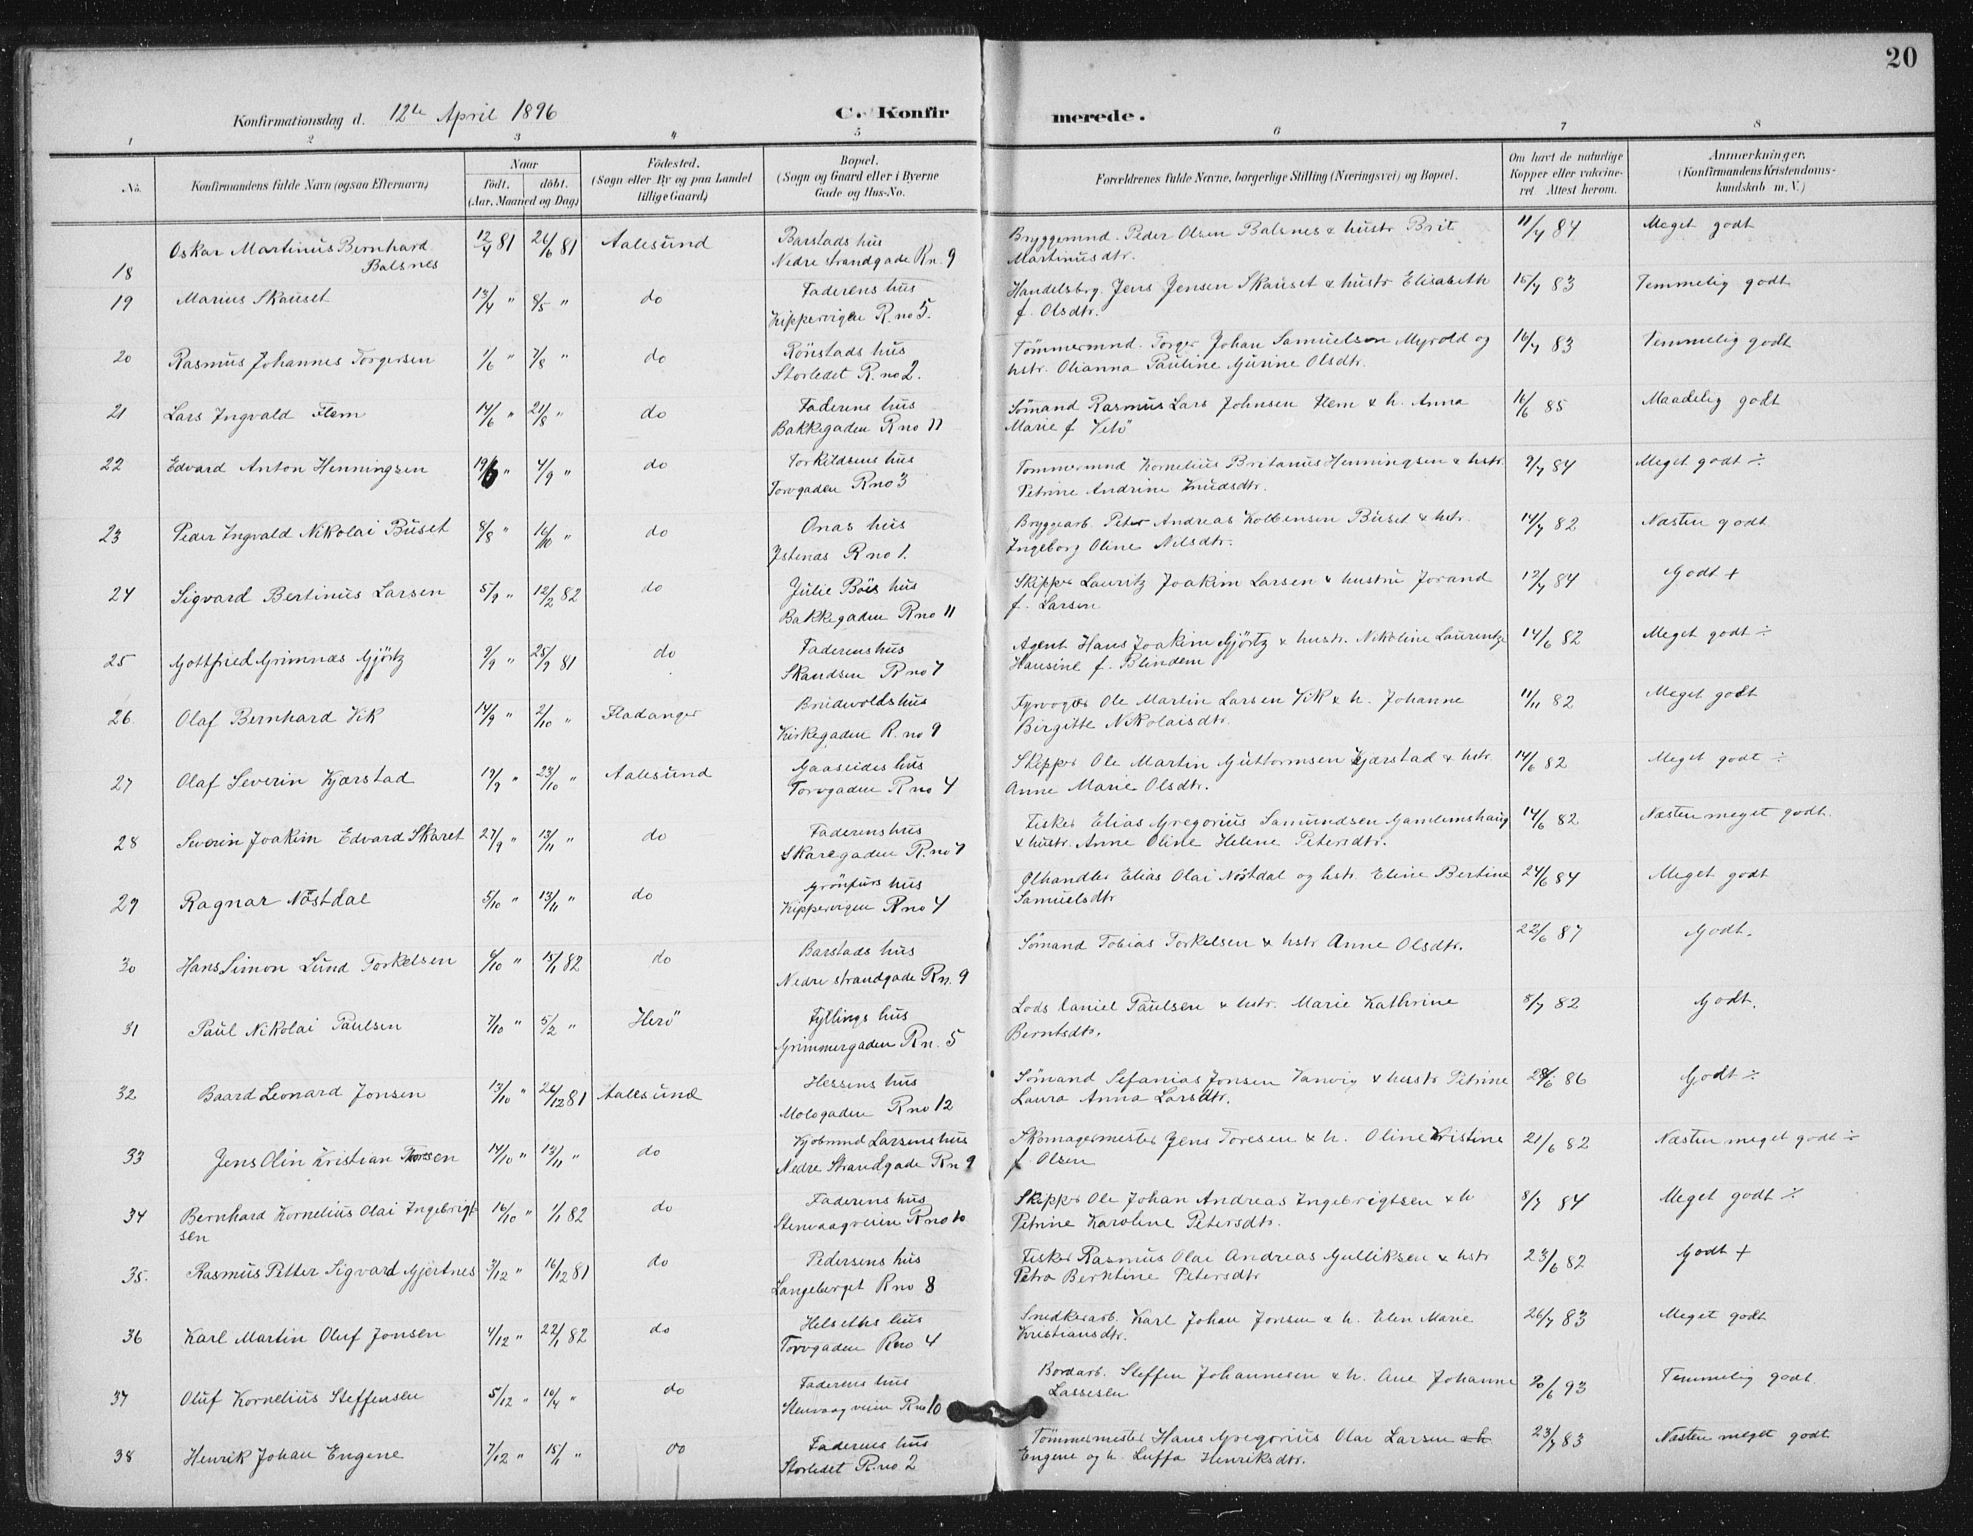 20
Konfirmationsdag d. 12te April 1896 C. Konfir merede.
1 2 3 4 5 6 7 8
No. Konfirmandens fulde Navn (ogsaa Efternavn) Naar født. døbt. (Aar, Maaned og Dag) Fødested. (Sogn eller By og paa Landet tillige Gaard) Bopæl. (Sogn og Gaard eller i Byerne Gade og Hus-No. Forældrenes fulde Navne, borgerlige Stilling (Næringsvei) og Bopæl. Om havt de naturlige Kopper eller vakcineret. Attest herom. Anmærkninger. (Konfirmandens Kristendomskundskab m. V.)
18 Oskar Martinus Bernhard 12/4 81 26/6 81 Aalesund Barstads hus Bryggemnd. Peder Olsen Balsnes & hustr Brit 11/7 84 Meget godt
Balsnes Nedre strandgade R n. 9 Martinusdtr.
19 Marius Skauset 13/4 " 8/5 " do Faderens hus Handelsbrg. Jens Jensen Skauset & hustr Elisabeth 15/7 83 Temmelig godt
Kippervigen R. no 5. f. Olsdtr.
20 Rasmus Johannes Torgersen 1/6 " 7/8 " do Rönstads hus Tömmermnd. Torger Johan Samuelsen Myrold og 16/7 83 Temmelig godt
Storledet R. no 2. hstr. Olianna Pauline Gurine Olsdtr.
21 Lars Ingvald Flem 14/6 " 21/8 " do Faderens hus Sömand Rasmus Lars Johnsen Flem & h. Anna 16/6 85 Maadelig godt
Bakkegaden R no 11 Marie f
22 Edvard Anton Henningsen 19/6 " 4/9 " do Torkildsens hus Tømmermnd Kornelius Britanus Henningsen & hstr. 9/7 84 Meget godt ÷
Torvgaden R no 3 Petrine Andrine Knudsdtr.
23 Peder Ingvald Nikolai Buset 8/8 " 16/10 " do Onas hus Bryggearb. Peter Andreas Kolbensen Buset & hstr. 14/7 82 Næsten godt
R no 1. Ingeborg Oline Nilsdtr.
24 Sigvard Bertinus Larsen 5/9 " 12/2 82 do Julie Böes hus Skipper Lauritz Joakim Larsen & hustru Jorand 12/7 84 Godt +
Bakkegaden R no 11 f. Larsen
25 Gottfried Grimnæs Gjörtz 9/9 " 25/9 81 do Faderens hus Agent Hans Joakim Gjörtz & hustr. Nikoline Laurentze 14/6 82 Meget godt ÷
Skandsen R no 7 Hansine f. Blindem
26 Olaf Bernhard Vik 14/9 " 2/10 " Fladanger hus Fyrvogter Ole Martin Larsen Vik & h. Johanne 11/11 82 Meget godt
Kirkegaden R. no 9 Birgitte Nikolaisdtr.
27 Olaf Severin Kjærstad 19/9 " 23/10 " Aalesund Gaaseides hus Skipper Ole Martin Guttormsen Kjærstad & hstr. 14/6 82 Meget godt ÷
Torvgaden R no 4 Anne Marie Olsdtr.
28 Severin Joakim Edvard Skaret 27/9 " 13/11 " do Faderens hus Fisker Elias Gregorius Samundsen Gamlemshaug 14/6 82 Næsten meget godt.
Skaregaden R. no 7 & hustr. Anne Oline Helene Petersdtr.
29 Ragnar Nöstdal 5/10 " 13/11 " do hus Ølhandler Elias Olai Nöstdal og hstr. Eline Bertine 24/6 84 Meget godt
Kippervigen R no 4 Samuelsdtr
30 Hans Simon Lund Torkelsen 6/10 " 15/1 82 do Barstads hus Sömand Tobias Torkelsen & hstr Anne Olsdtr. 22/6 87 Godt.
Nedre strandgade R n. 9
31 Paul Nikolai Paulsen 7/10 " 5/2 " Herö Fyllings hus Lods Daniel Paulsen & hstr. Marie Kathrine 8/7 82 Godt.
Grimmergaden R n. 5 Berntsdtr.
32 Baard Leonard Jonsen 13/10 " 26/12 81 Aalesund Hessens hus Sömand Sefanias Jonsen Vanvig & hustr Petrine 28/6 86 Godt ÷
Mologaden R no 12 Laura Anna Larsdtr.
33 Jens Olin Kristian Toresen 14/10 " 13/11 " do Kjöbmnd Larsens hus Skomagermester Jens Toresen & h. Oline Kristine 21/6 82 Næsten meget godt ÷
Nedre Strandgade R n 9 f. Olsen
34 Bernhard Kornelius Olai Ingebrigt 16/10 " 1/1 82 do Faderens hus Skipper Ole Johan Andreas Ingebrigtsen & h 8/7 84 Meget godt ÷
sen Stenvaagveien R no 10 Petrine Karoline Petersdtr.
35. Rasmus Petter Sigvard Gjertnes 3/12 " 16/12 81 do Pedersens hus Fisker Rasmus Olai Andreas Gulliksen & hstr 23/6 82 Godt +
Langeberget R no 8 Petra Berntine Petersdtr
36 Karl Martin Oluf Jonsen 4/12 " 22/1 82 do Helseths hus Snedkerarb. Karl Johan Jonsen & h. Elen Marie 26/7 83 Meget godt
Torvgaden R no 4 Kristiansdtr.
37 Oluf Kornelius Steffensen 5/12 " 16/4 " do Faderens hus Bordarb. Steffen Johannesen & h. Ane Johanne 20/6 93 Temmelig godt.
Stenvaagveien R no 10 Lassesen
38 Henrik Johan Engene 7/12 " 15/1 " do Faderens hus Tömmermester Hans Gregorius Olai Larsen & h 23/7 83 Næsten meget godt
Storledet R. no 2 Engene og h. Luffa Henriksdtr.